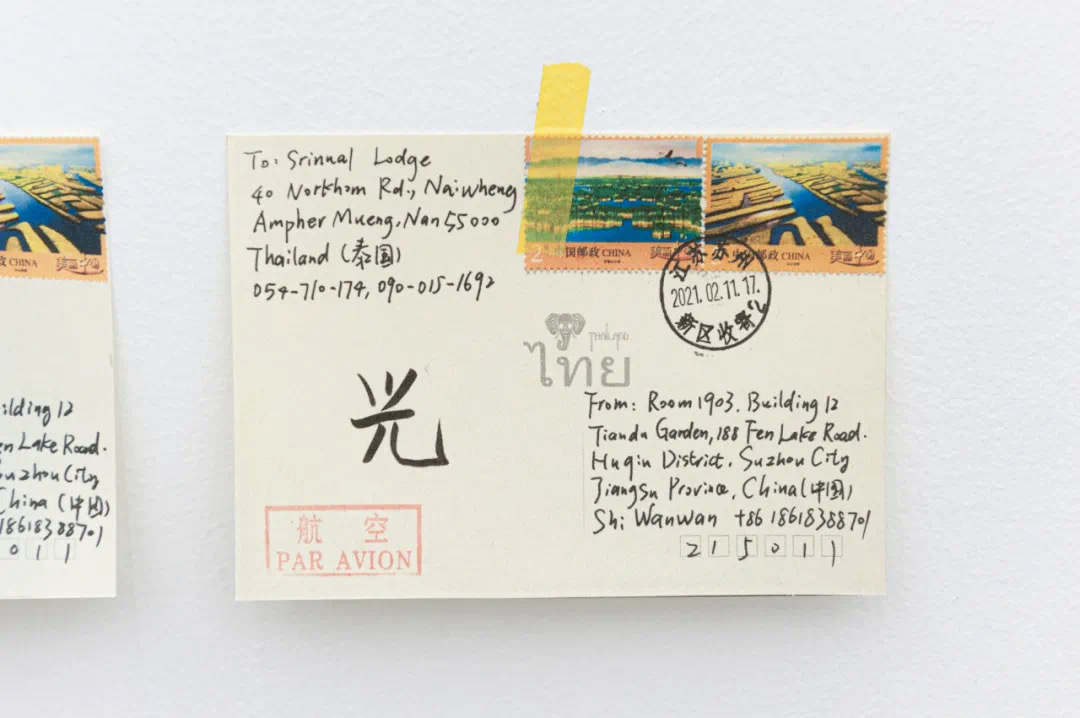 To: Srinual Lodge
40 Norkham Rd., Naiwheng
Ampher Mueng, Nan 55000
Thailand (泰国)
054-710-174, 090-015-1692
2
中国邮政 CHINA
中国邮政 CHINA
江苏苏州
2021.02.11.17.
新区收寄2
THAILAND
ไทย
光
航空
PAR AVION
From: Room 1903. Building 12
Tianda Garden, 188 Fen Lake Road.
Huqiu District, Suzhou City
Jiangsu Province, China (中国)
Shi Wanwan +86 18618388701
215011
政 CHINA
ilding 12
en Lake Road.
uzhou City
China (中国)
18618388701
011